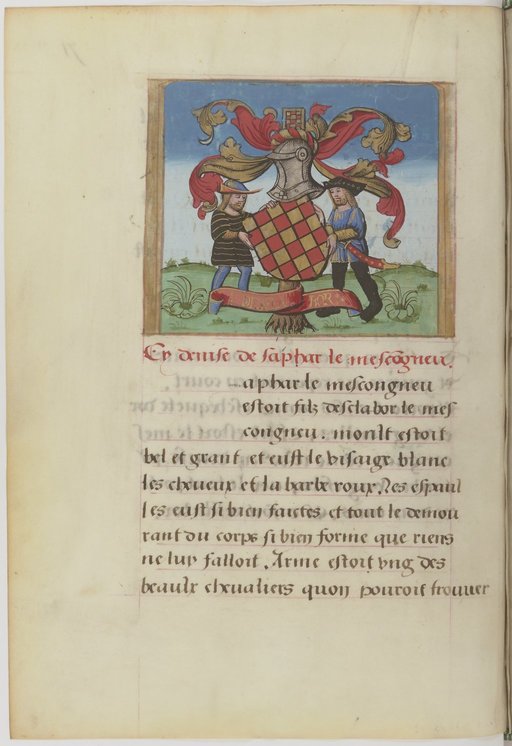 Cy deuise de saphar le mescongneu.
aphar le mescongneu
estoit filz desclabor le mes
congneu. moult estoit
bel et grant et eust le visaige blanc
les cheueux et la barbe roux. Les espaul
les eust si bien faictes et tout le demou
rant du corps si bien forme que riens
ne luy falloit. Arme estoit vng des
beaulx cheualiers quon pouroit trouuer